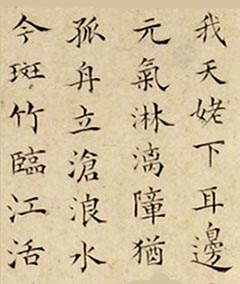 我天姥下耳邊
元氣淋漓障猶
孤舟立滄浪水
今斑竹臨江活